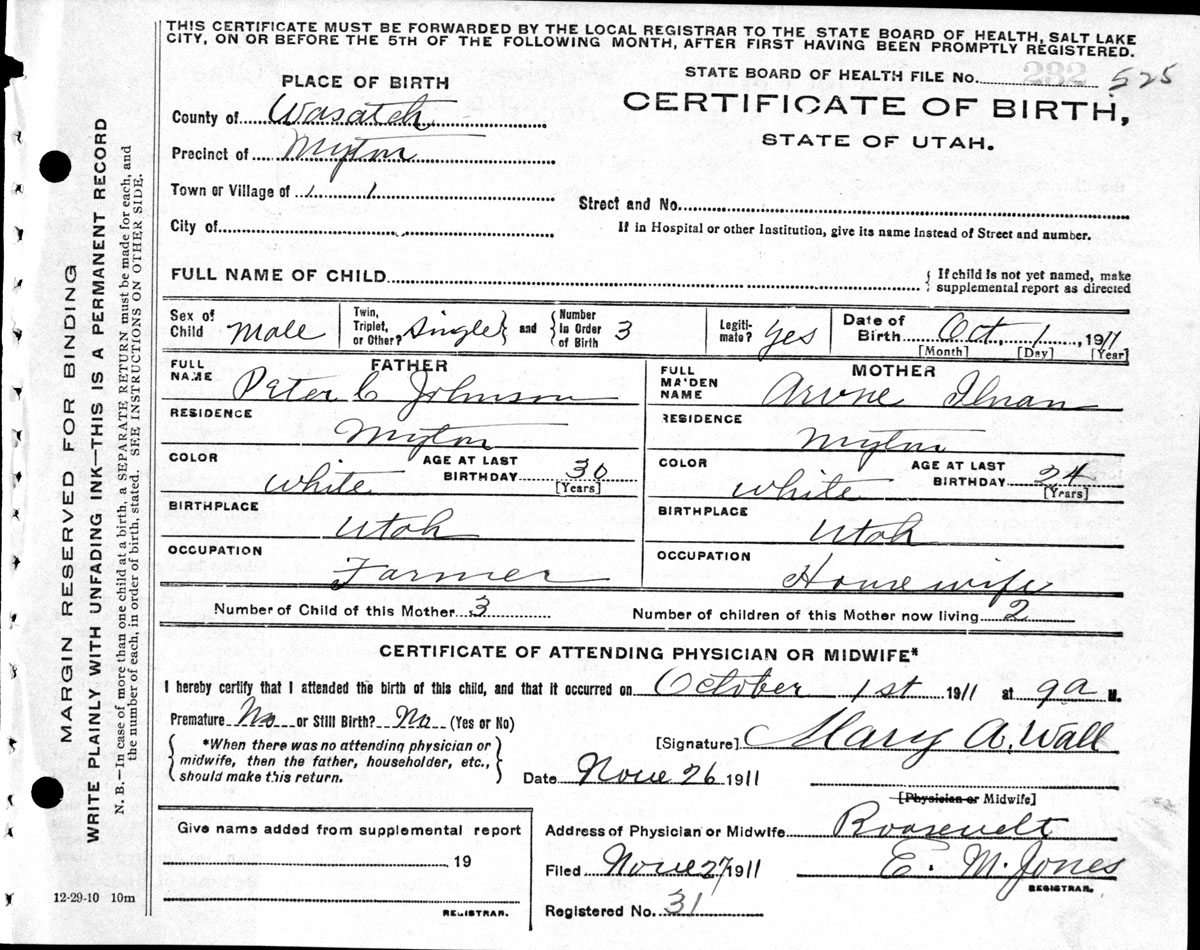 THIS CERTIFICATE MUST BE FORWARDED BY THE LOCAL REGISTRAR TO THE STATE BOARD OF HEALTH, SALT LAKE
CITY, ON OR BEFORE THE 5TH OF THE FOLLOWING MONTH, AFTER FIRST HAVING BEEN PROMPTLY REGISTERED.
PLACE OF BIRTH
STATE BOARD OF HEALTH FILE No. 232 525
County of Wasatch
CERTIFICATE OF BIRTH,
STATE OF UTAH.
Precinct of Myton
Town or Village of
Street and No.
City of
If in Hospital or other Institution, give its name instead of Street and number.
FULL NAME OF CHILD
{ If child is not yet named, make
supplemental report as directed
Sex of Child Male
Twin, Triplet, or Other? Single } and { Number in Order of Birth 3
Legiti-mate? Yes
Date of Birth Oct. 1, 1911
[Month] [Day] [Year]
FATHER
FULL NAME Peter C Johnson
MOTHER
FULL MAIDEN NAME
RESIDENCE Myton
RESIDENCE Myton
COLOR White AGE AT LAST BIRTHDAY 30 [Years]
COLOR White AGE AT LAST BIRTHDAY 24 [Years]
BIRTHPLACE Utah
BIRTHPLACE Utah
OCCUPATION Farmer
OCCUPATION Housewife
Number of Child of this Mother 3
Number of children of this Mother now living 2
CERTIFICATE OF ATTENDING PHYSICIAN OR MIDWIFE*
I hereby certify that I attended the birth of this child, and that it occurred on October 1st 1911 at 9a M.
Premature No or Still Birth? No (Yes or No)
{ *When there was no attending physician or
midwife, then the father, householder, etc.,
should make this return. }
[Signature] Mary A. Wall
Date Nove 26 1911
[Physician or Midwife]
Give name added from supplemental report
19
REGISTRAR.
Address of Physician or Midwife Roosevelt
Filed Nove 27 1911 E. M. Jones
REGISTRAR.
Registered No. 31
12-29-10 10m
MARGIN RESERVED FOR BINDING
WRITE PLAINLY WITH UNFADING INK—THIS IS A PERMANENT RECORD
N. B.—In case of more than one child at a birth, a SEPARATE RETURN must be made for each, and
the number of each, in order of birth, stated. SEE INSTRUCTIONS ON OTHER SIDE.